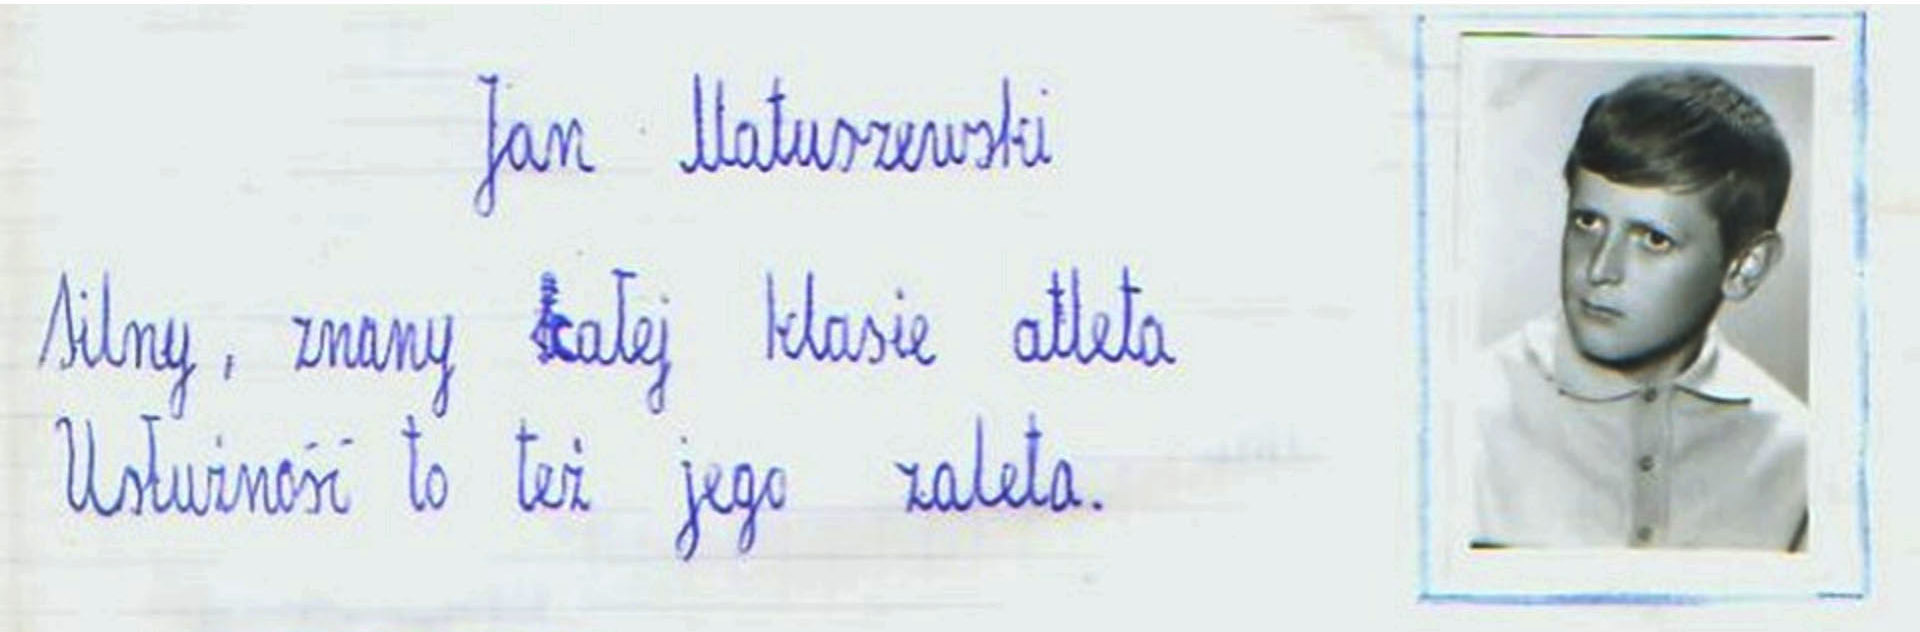 Jan Matuszewski
Silny, znany całej klasie atleta
Usłużność to też jego zaleta.